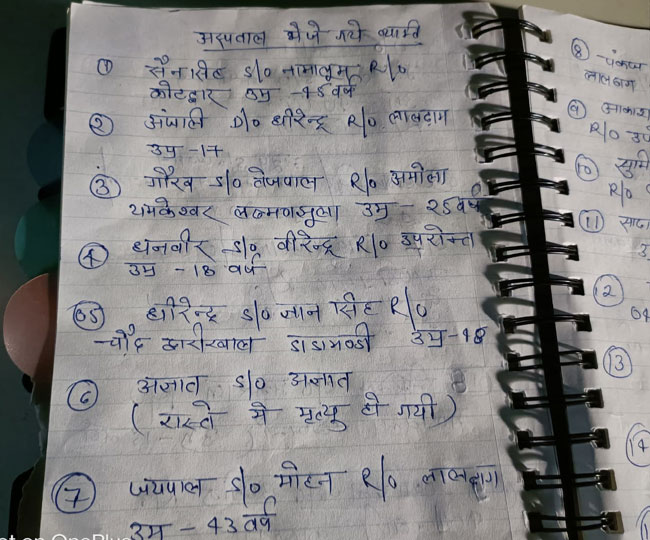 अस्पताल भेजे गये व्यक्ति
① सैन सिंह S/o नामालूम R/o
कोटद्वार उम्र -45 वर्ष
② अंजली D/o धीरेन्द्र R/o लालढांग
उम्र -17
③ गौरव S/o तेजपाल R/o अमोला
यमकेश्वर लक्ष्मणझूला उम्र - 25 वर्ष
④ धनवीर S/o वीरेन्द्र R/o उपरोक्त
उम्र -18 वर्ष
05 धीरेन्द्र S/o ज्ञान सिंह R/o
द्वारीखाल डाडामण्डी उम्र -48
⑥ अज्ञात S/o अज्ञात
( रास्ते मे मृत्यु हो गयी )
⑦ जयपाल S/o मोहन R/o लालढांग
उम्र - 43 वर्ष
⑧
लालढांग
⑨
R/o
⑩
R/o
⑪
⑫
⑬
⑭
on OnePlus